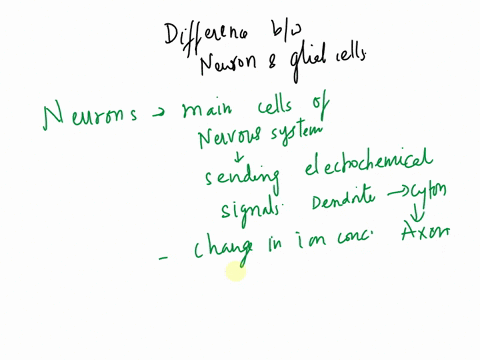 Difference b/w
Neuron & glial cells
Neurons → main cells of
Nervous system
↓
sending electrochemical
signals. Dendrite → cyton
↓
- change in ion conc. Axon